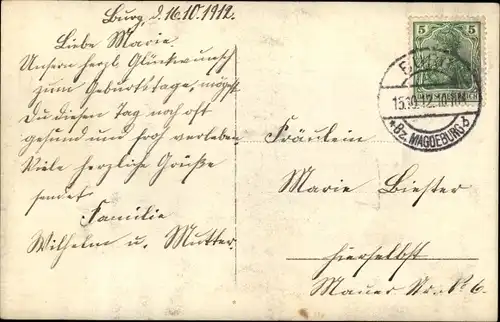 Burg, d. 16.10.1912.
Liebe Marie.
Unsern herzl. Glückwunsch
zum Geburtstage, mögest
Du diesen Tag noch oft
gesund und froh verleben
Viele herzliche Grüße
sendet
Familie
Wilhelm u. Mutter.
5 5
15.10.12.10-11
*Bz. MAGDEBURG b
Fräulein
Marie Biester
hierselbst
Mauer Str. No 6.